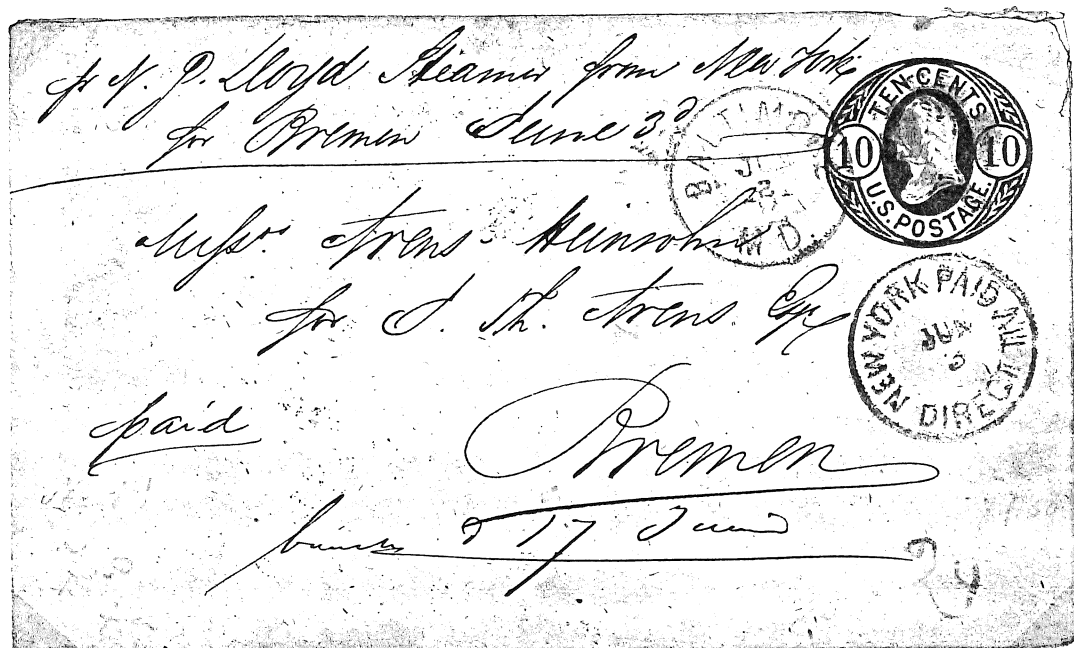 pr N. G. Lloyd Steamer from New York
for Bremen June 3d
TEN CENTS
10 10
U.S. POSTAGE.
BALTIMORE
MD.
Messrs. Arens
for J. Th. Arens. Esq
NEW YORK PAID ALL
DIRECT
paid
Bremen
17 Juni